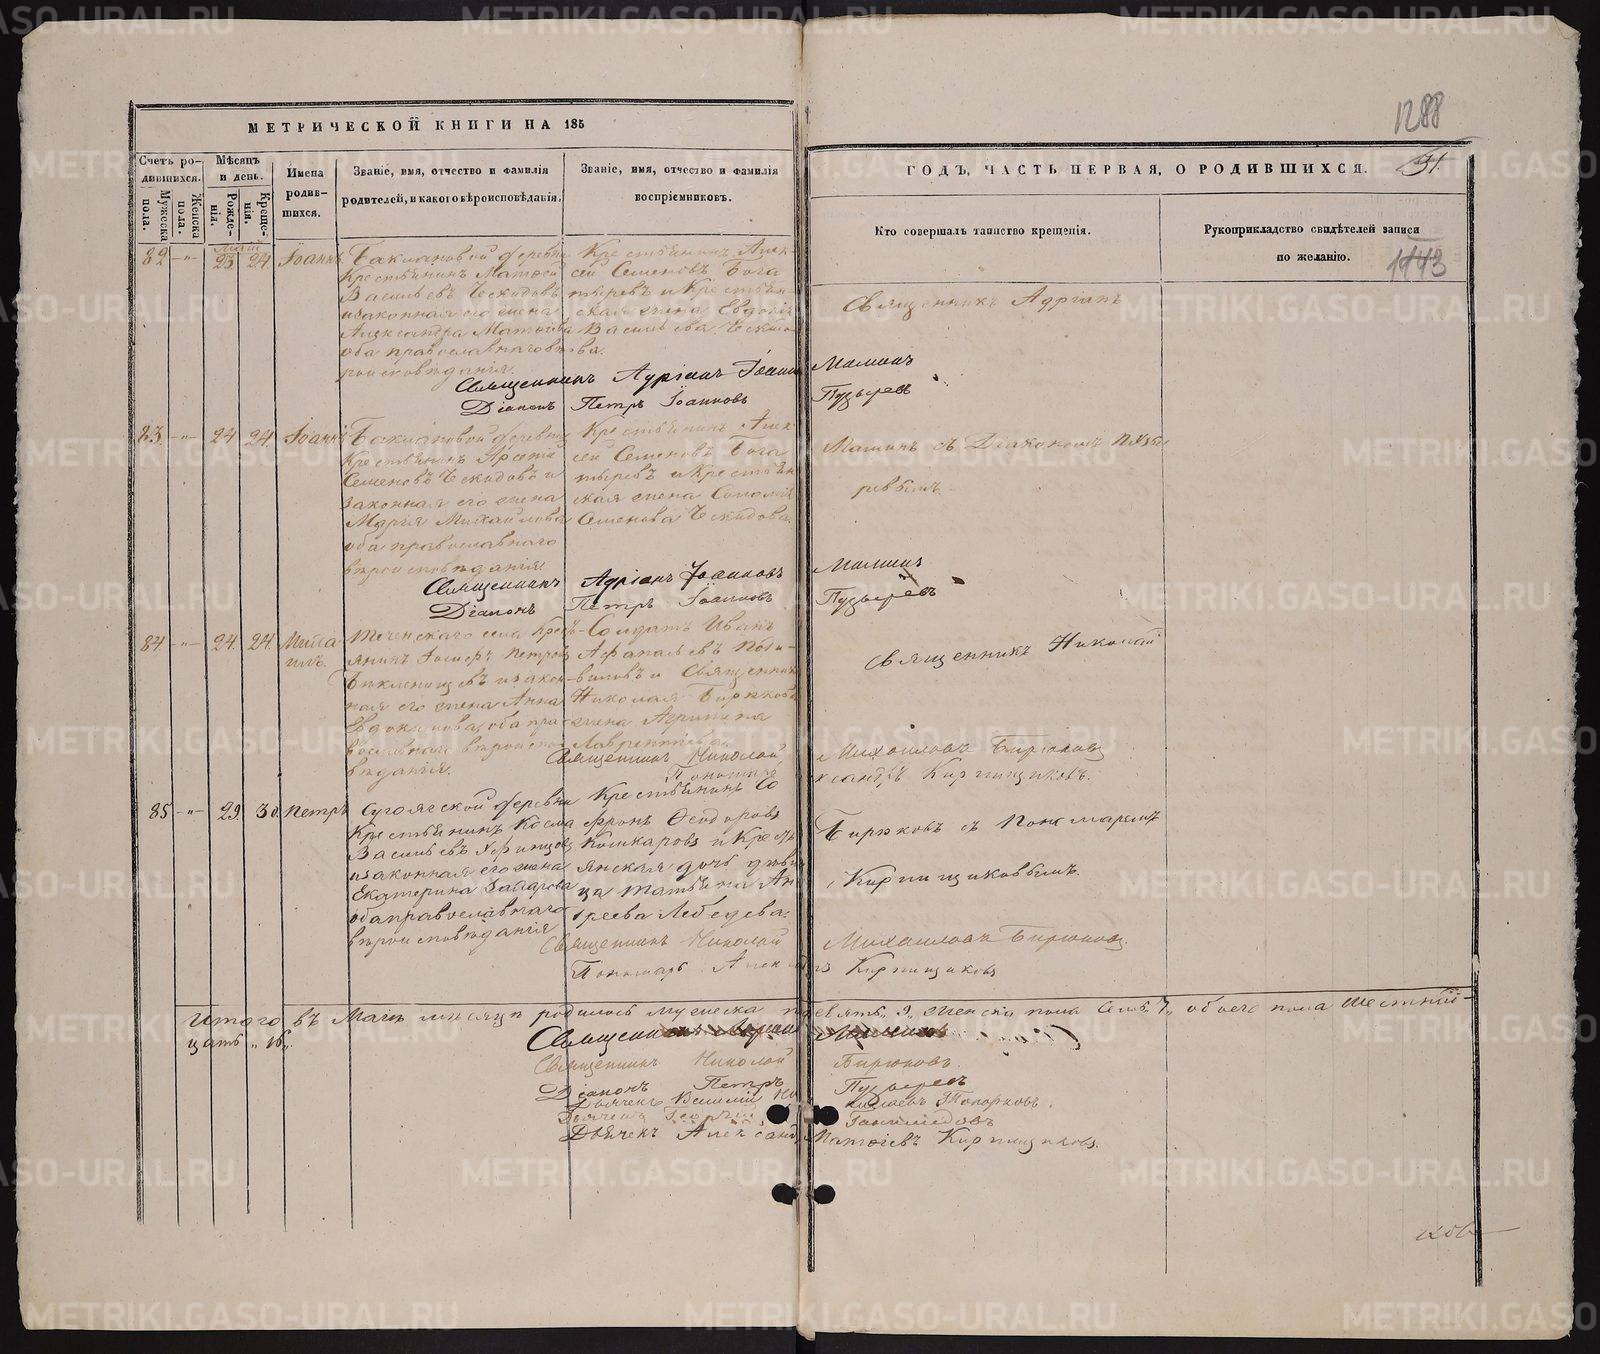 1288
МЕТРИЧЕСКОЙ КНИГИ НА 185
ГОДЪ, ЧАСТЬ ПЕРВАЯ, О РОДИВШИХСЯ.
91.
Счетъ родившихся.
Мужеска пола.
Женска пола.
Мѣсяцъ и день.
Рожденія.
Крещенія.
Имена родившихся.
Званіе, имя, отчество и фамилія
родителей, и какого вѣроисповѣданія.
Званіе, имя, отчество и фамилія
воспріемниковъ.
Кто совершалъ таинство крещенія.
Рукоприкладство свидѣтелей записи
по желанію.
1443
Май
82 -"- 23 24 Іоаннъ
Баклановой деревни
Крестьянинъ Матѳей
Васильевъ Чекидовъ
и законная его жена
Александра Матѳеева
оба православнаго вѣ
роисповѣданія.
Крестьянинъ Алек
сей Семеновъ Бога
тыревъ и Крестьян
ская жена Евдокія
Васильева
Священникъ Адріанъ
Священникъ Адріанъ Іоанн Малинъ
Діаконъ Петръ Іоанновъ Пузыревъ
83. -"- 24 24 Іоаннъ
Баклановой деревни
Крестьянинъ Арсеній
Семеновъ Чекидовъ и
законная его жена
Марія Михайлова
оба православнаго
вѣроисповѣданія
Крестьянинъ Алек
сей Семеновъ Бога
тыревъ и Крестьян
ская жена Соломія
Семенова Чекидова.
Малинъ съ Діакономъ Пузы
ревымъ
Священникъ Адріанъ Іоанновъ Малинъ
Діаконъ Петръ Іоанновъ Пузыревъ
84 -"- 24. 24. Миха
илъ.
Теченскаго села Крест
янинъ Петровъ
и закон
ная его жена Анна
Евдокимова, оба пра
вославнаго вѣроиспо
вѣданія.
Солдатъ Иванъ
Афанасьевъ
и Священника
Николая Бирюкова
жена Агрипина
Лаврентьева
Священникъ Николай
Священникъ Николай Михайловъ Бирюковъ
Пономарь Александръ Кирпищиковъ.
85 -"- 29. 30. Петръ
Сугоякской деревни
Крестьянинъ Косма
Васильевъ
и законная его жена
Екатерина
оба православнаго
вѣроисповѣданія
Крестьянинъ Со
фронъ Ѳеодоровъ
Кошкаровъ и Крест
янская дочь дѣви
ца Татьяна Ан
дреева Лебедева.
Бирюковъ съ Пономаремъ
Кирпищиковымъ.
Священникъ Николай Михайловъ Бирюковъ.
Пономарь Александръ Кирпищиковъ
Итого въ Маѣ мѣсяцѣ родилось мужеска п девять, 9, женска пола семь 7, обоего пола шестнад-
цать "16".
Священникъ Адріанъ Малинъ
Священникъ Николай Бирюковъ.
Діаконъ Петръ Пузыревъ
Дьячекъ Василій Топорковъ.
Дьячекъ Георгій Ганимедовъ
Дьячекъ Александръ Матѳіевъ Кирпищиковъ.
METRIKI.GASO-URAL.RU